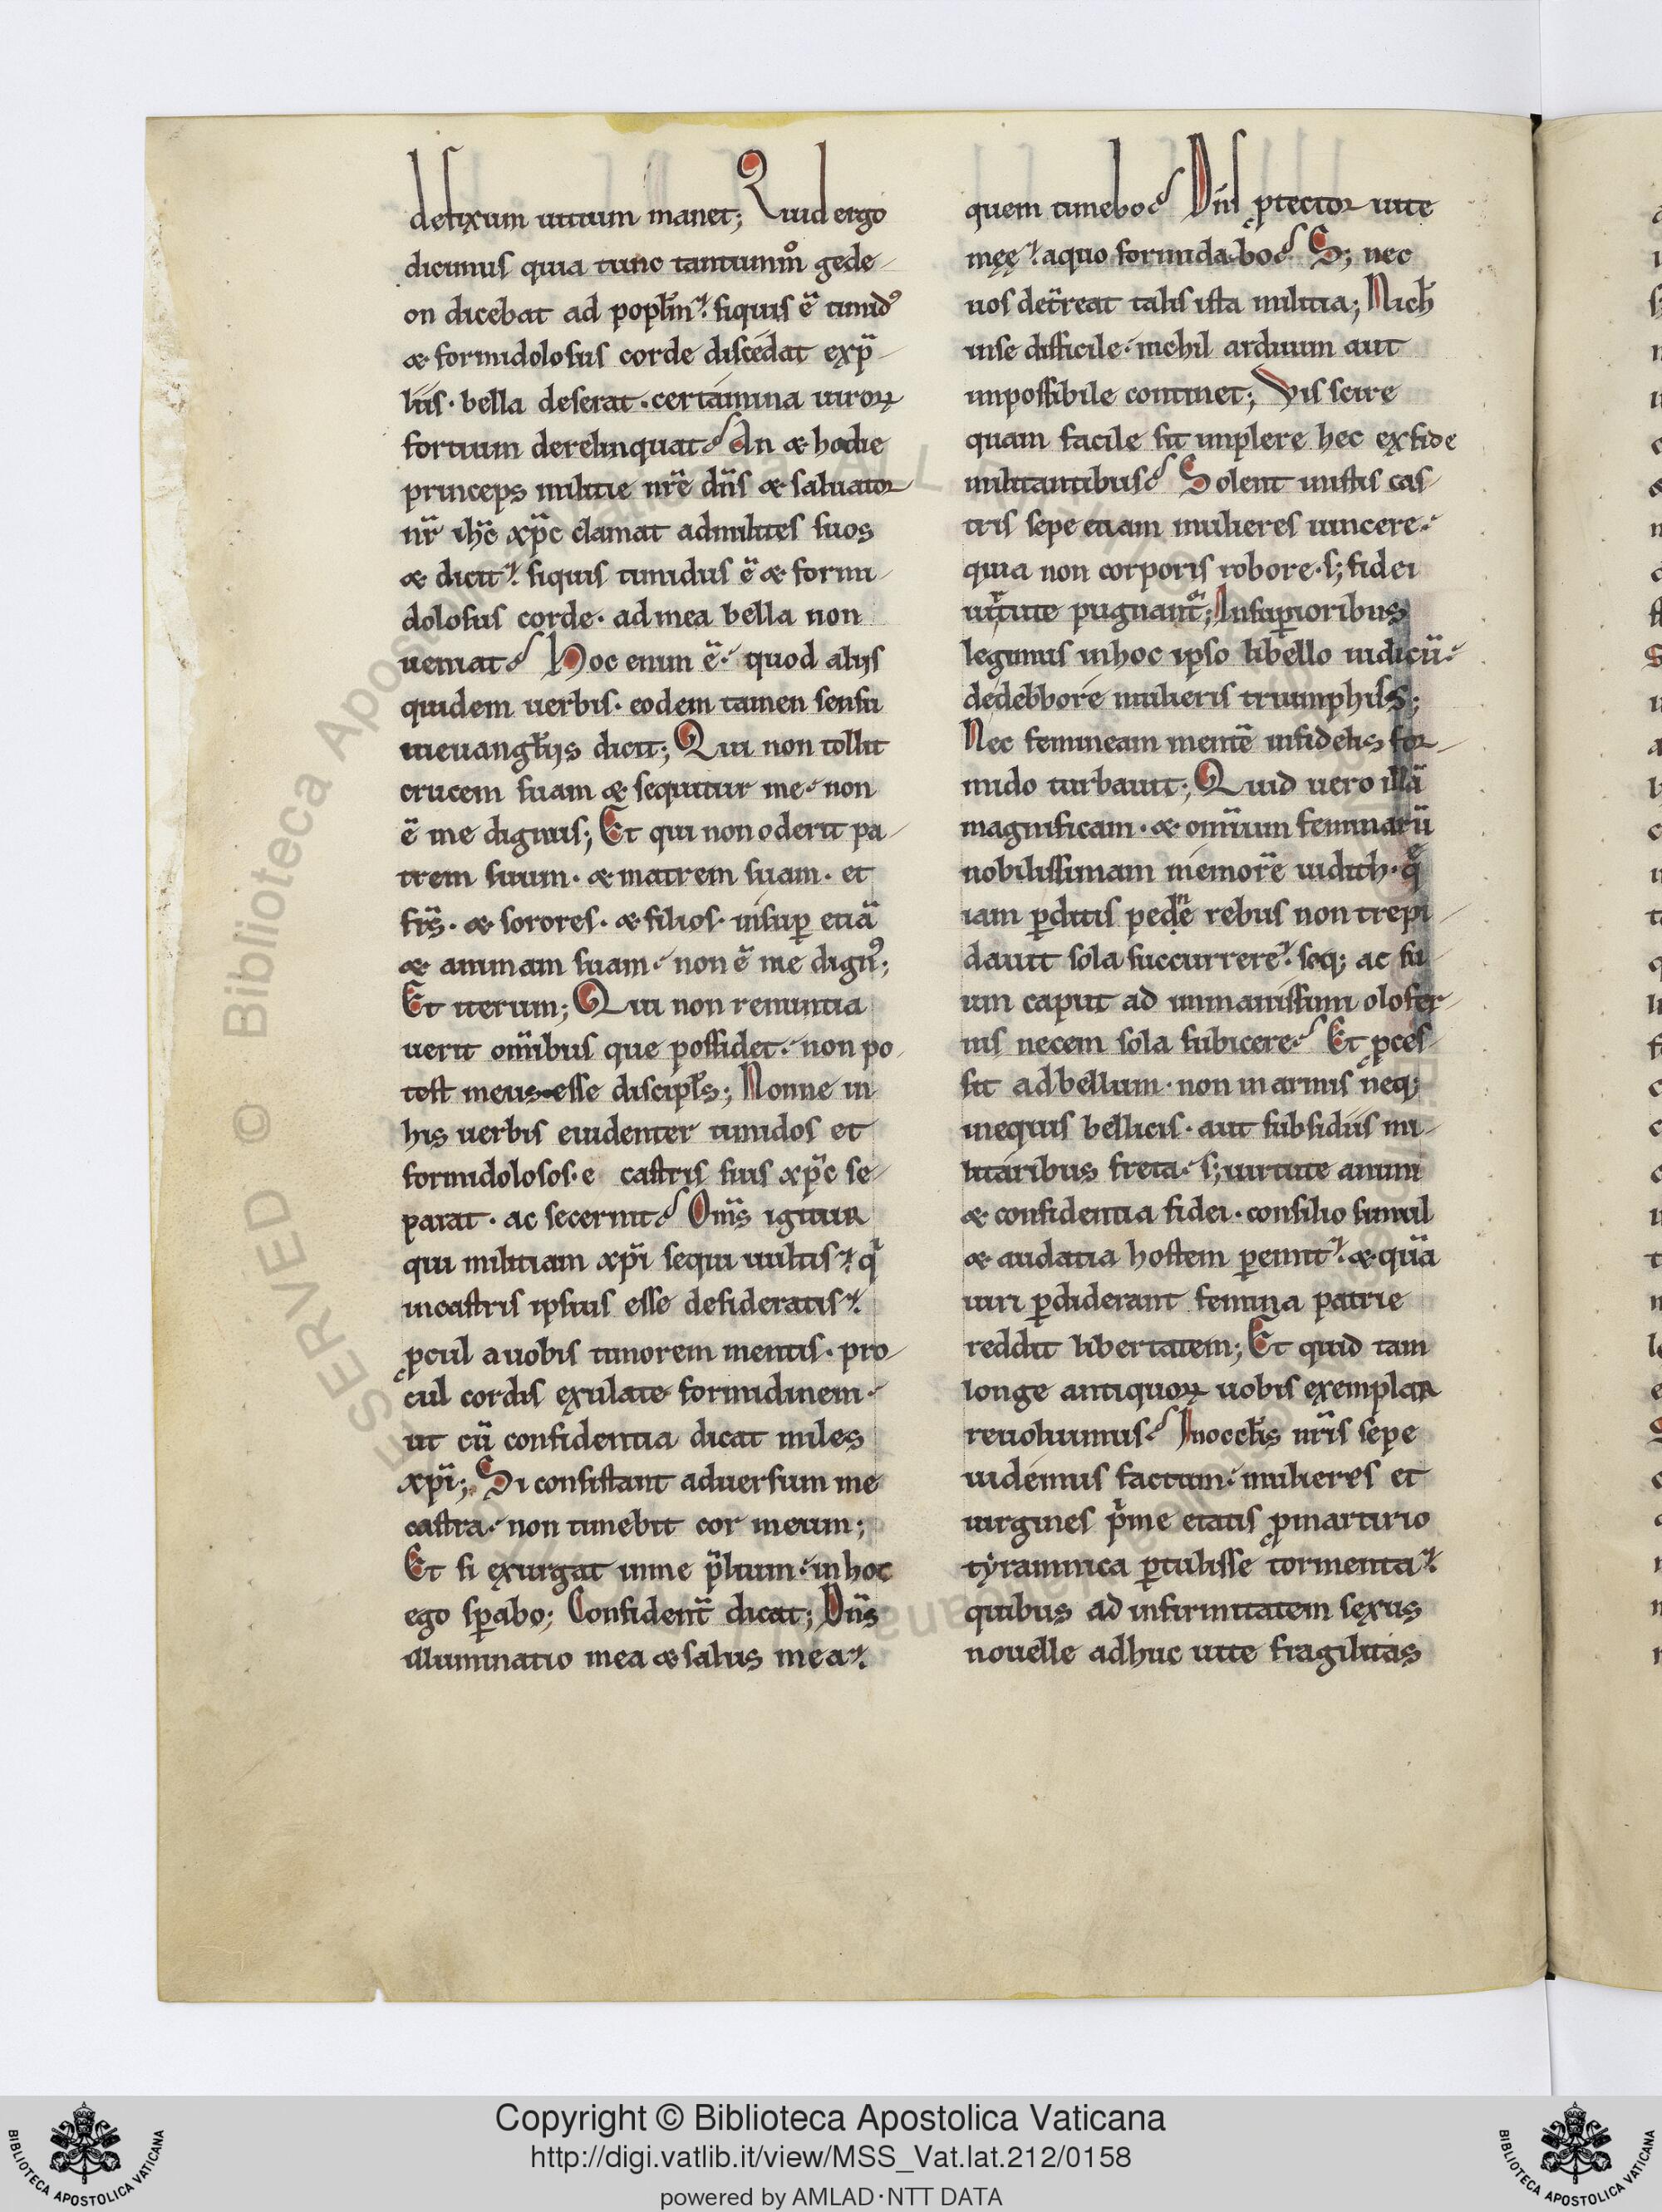 defixum uitium manet; Quid ergo
dicimus quia tunc tantummͦ gede-
on dicebat ad popl̄m. siquis ē timidꝰ
& formidolosus corde discedat exp̄-
liis. bella deserat. certamina uiroꝝ
fortium derelinquat? An & hodie
princeps militie nr̄e dn̄s & saluator
nr̄ ih̄c xp̄c clamat admilites suos
& dicit. siquis timidus ē & formi-
dolosus corde. ad mea bella non
ueniat? Hoc enim ē. quod alijs
quidem uerbis. eodem tamen sensu
ineuangl̄ijs dicit; Qui non tollit
crucem suam & sequitur me. non
ē me dignus; Et qui non oderit pa-
trem suum. & matrem suam. et
fr̄s. & sorores. & filios. insuꝑ etiā
& animam suam. non ē me dignꝰ;
Et iterum; Qui non renuntia
uerit om̄ibus que possidet. non po-
test meus esse discipl̄s; Nonne in
his uerbis euidenter timidos et
formidolosos. e castris suis xp̄c se-
parat. ac secernit? Om̄s igitur
qui militiam xp̄i sequi uultis. qͥ
incastris ipsius esse desideratis.
ꝓcul auobis timorem mentis. pro-
cul cordis exulate formidinem.
ut cū confidentia dicat miles
xp̄i; Si consistant aduersum me
castra. non timebit cor meum;
Et si exurgat inme p̄lium. in hoc
ego sꝑabo; Confident̄ dicat; Dn̄s
illuminatio mea & salus mea.
quem timebo? Dn̄s ꝓtector uite
męę. aquo formidabo? S; nec
uos det̄reat talis ista militia; Nich̄
inse difficile. nichil arduum aut
impossibile continet; Vis scire
quam facile sit implere hec exfide
militantibus? Solent iustis cas-
tris sepe etiam mulieres uincere.
quia non corporis robore. s; fidei
uͥrtute pugnant̄; Insuꝑioribus
legimus inhoc ipso libello iudicū.
dedebbore mulieris triumphis;
Nec femineam mentē infidelis for-
mido turbauit; Quid uero illā
magnificam. & omīum feminarū
nobilissimam memor̄e iudith. q̄
iam ꝑditis pedē rebus non trepi-
dauit sola succurrere. seq; ac su-
um caput ad inmanissimi olofer-
nis necem sola subicere? Et ꝓces-
sit ad bellum. non in armis neq;
inequis bellicis. aut subsidiis mi-
litaribus freta. s; uirtute animi
& confidentia fidei. consilio simul
& audatia hostem ꝑemit. & quā
uiri ꝑdiderant femina patrie
reddit libertatem; Et quid tam
longe antiquoꝝ uobis exemplar
reuoluimus? Inoccl̄is nr̄is sepe
uidemus factum. mulieres et
uirgines pͥme etatis ꝓmartirio
tyrannica ꝑtulisse tormenta.
quibus ad infirmitatem sexus
nouelle adhuc uite fragilitas
Copyright © Biblioteca Apostolica Vaticana
http://digi.vatlib.it/view/MSS_Vat.lat.212/0158
powered by AMLAD·NTT DATA
BIBLIOTECA APOSTOLICA VATICANA
BIBLIOTECA APOSTOLICA VATICANA